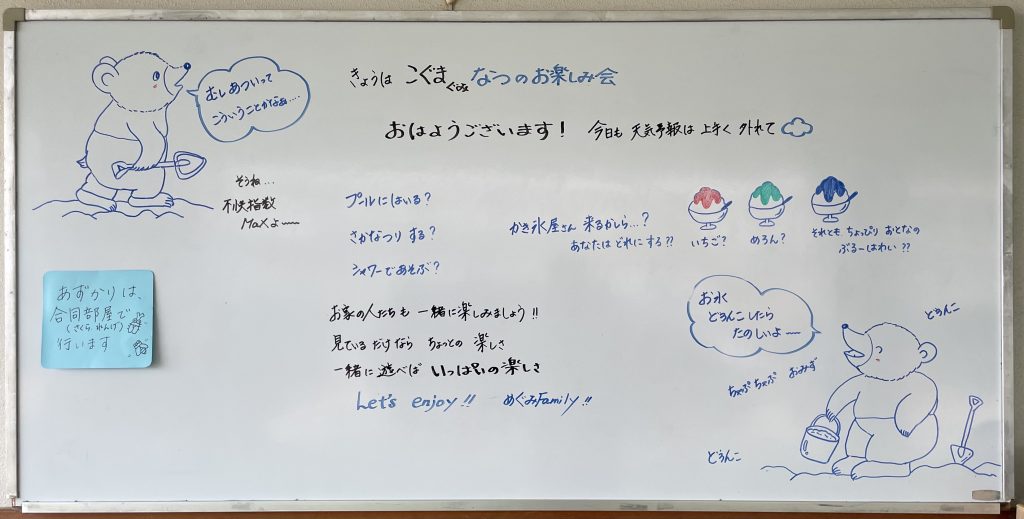 きょうは こぐまぐみ なつのお楽しみ会
おはようございます! 今日も 天気予報は 上手く 外れて
むしあついって
こういうことかなぁ....
そうね...
不快指数
Maxよ〜
プールにはいる?
さかなつり する?
シャワーであそぶ?
かき氷屋さん 来るかしら...?
あなたは どれにする??
いちご?
めろん?
それとも ちょっぴり おとなの
ぶるーはわい ??
あずかりは、
合同部屋で
(さくら れんげ)
行います
お家の人たちも 一緒に楽しみましょう!!
見ているだけなら ちょっとの 楽しさ
一緒に 遊べば いっぱいの楽しさ
Let's enjoy!! めぐみFamily!!
お水
どろんこしたら
たのしいよ〜
どろんこ
ちゃぷちゃぷ おみず
どろんこ